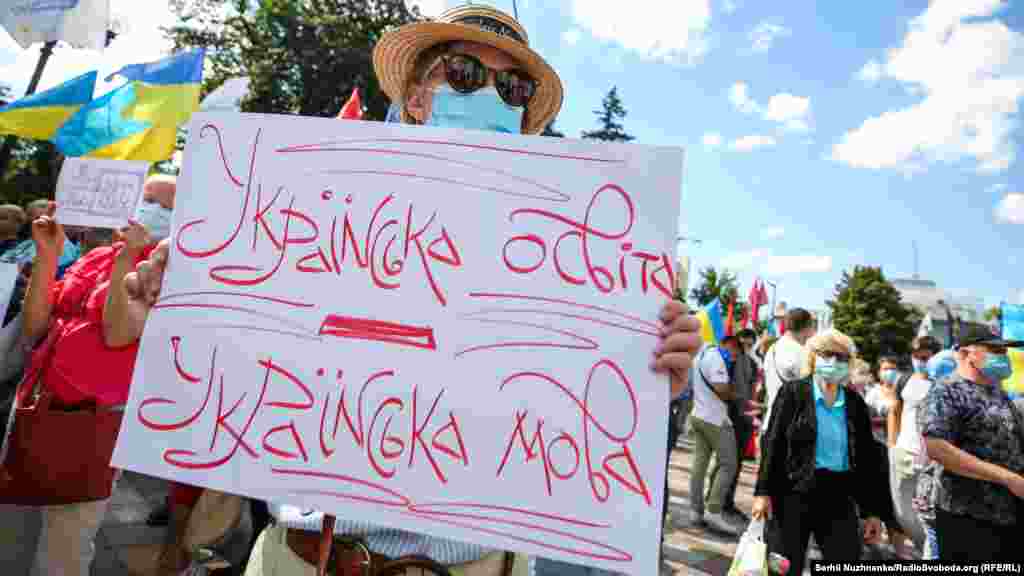 Українська освіта
—
Українська мова
Serhii Nuzhnenko/RadioSvoboda.org (RFE/RL)